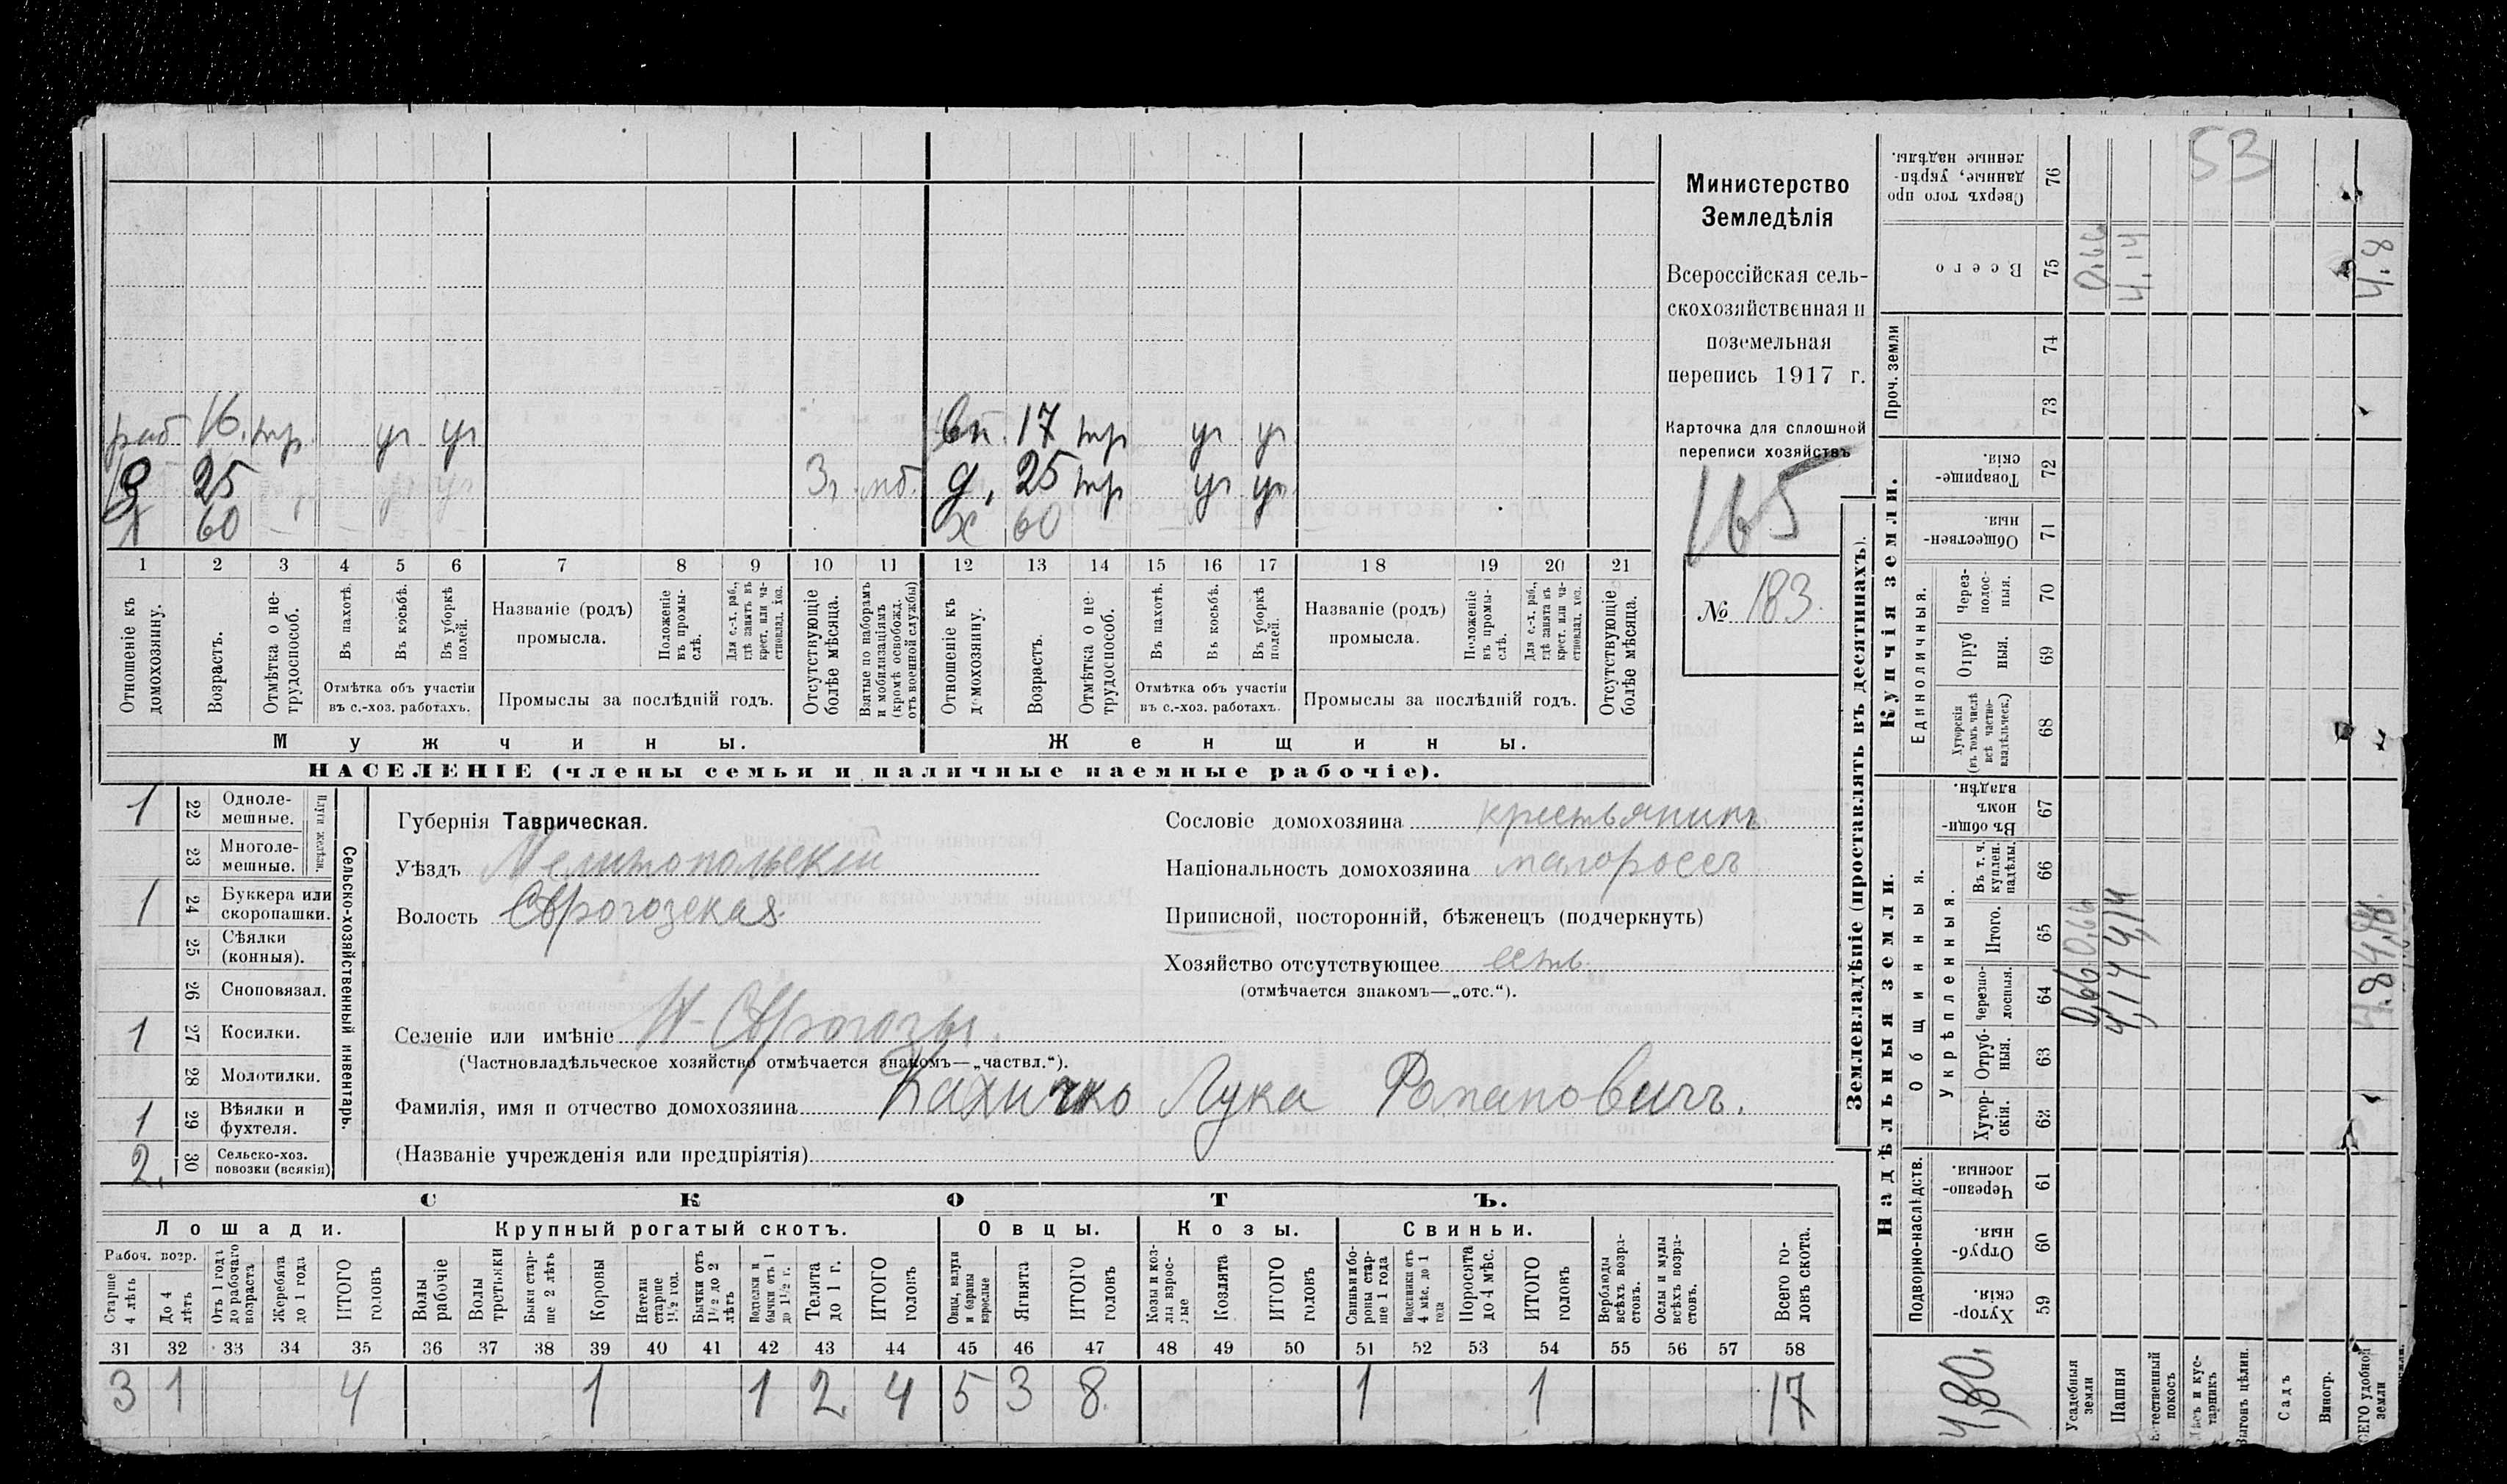 53
Министерство
Земледѣлія
Всероссійская сель-
скохозяйственная и
поземельная
перепись 1917 г.
Карточка для сплошной
переписи хозяйствъ
165
№ 183.
раб 16. тр. уч уч
вн. 17 тр уч уч
25 3г. мб.
д. 25 тр уч уч
х 60
х 60
1 2 3 4 5 6 7 8 9 10 11 12 13 14 15 16 17 18 19 20 21
Отношеніе къ домохозяину.
Возрастъ.
Отмѣтка о не-трудоспособ.
Въ пахотѣ.
Въ косьбѣ.
Въ уборкѣ полей.
Отмѣтка объ участіи
въ с.-хоз. работахъ.
Названіе (родъ)
промысла.
Положеніе въ промы-слѣ.
Для с.-х. раб., гдѣ занятъ въ крест. или ча-стновлад. хоз.
Промыслы за послѣдній годъ.
Отсутствующіе болѣе мѣсяца.
Взятые по наборамъ и мобилизаціямъ (кромѣ освобожд. отъ военной службы)
Отношеніе къ домохозяину.
Возрастъ.
Отмѣтка о не-трудоспособ.
Въ пахотѣ.
Въ косьбѣ.
Въ уборкѣ полей.
Отмѣтка объ участіи
въ с.-хоз. работахъ.
Названіе (родъ)
промысла.
Положеніе въ промы-слѣ.
Для с.-х. раб., гдѣ занята въ крест. или ча-стновлад. хоз.
Промыслы за послѣдній годъ.
Отсутствующіе болѣе мѣсяца.
Мужчины.
Женщины.
НАСЕЛЕНІЕ (члены семьи и наличные наемные рабочіе).
1 22 Одноле-мешные.
23 Многоле-мешные.
Плуги желѣзн.
1 24 Буккера или скоропашки.
25 Сѣялки (конныя).
26 Сноповязал.
1 27 Косилки.
28 Молотилки.
1 29 Вѣялки и фухтеля.
2. 30 Сельско-хоз. повозки (всякія)
Сельско-хозяйственный инвентарь.
Губернія Таврическая.
Уѣздъ Мелитопольскій
Волость
Селеніе или имѣніе
(Частновладѣльческое хозяйство отмѣчается знакомъ—„частвл.“).
Фамилія, имя и отчество домохозяина Кахичко Лука Романовичъ.
(Названіе учрежденія или предпріятія)
Сословіе домохозяина крестьянинъ
Національность домохозяина малороссъ
Приписной, посторонній, бѣженецъ (подчеркнуть)
Хозяйство отсутствующее есть
(отмѣчается знакомъ—„отс.“).
СКОТЪ.
Лошади. Крупный рогатый скотъ. Овцы. Козы. Свиньи.
Рабоч. возр.
Старше 4 лѣтъ
До 4 лѣтъ
Отъ 1 года до рабочаго возраста
Жеребята до 1 года
ИТОГО головъ
Волы рабочіе
Волы третьяки
Быки стар-ше 2 лѣтъ
Коровы
Нетели старше 1½ год.
Бычки отъ 1½ до 2 лѣтъ
Подтелки и бычки отъ 1 до 1½ г.
Телята до 1 г.
ИТОГО головъ
Овцы, валухи и бараны взрослые
Ягнята
ИТОГО головъ
Козы и коз-лы взрос-лые
Козлята
ИТОГО головъ
Свиньи и бо-ровы стар-ше 1 года
Подсвинки отъ 4 мѣс. до 1 года
Поросята до 4 мѣс.
ИТОГО головъ
Верблюды всѣхъ возра-стовъ.
Ослы и мулы всѣхъ возра-стовъ.
Всего го-ловъ скота.
31 32 33 34 35 36 37 38 39 40 41 42 43 44 45 46 47 48 49 50 51 52 53 54 55 56 57 58
3 1 4 1 1 2 4 5 3 8. 1 1 17
Землевладѣніе (проставлять въ десятинахъ).
Сверхъ того про данные, укрѣп-ленные надѣлы. 76
Всего 75 4,14 4,8
Проч. земли 74 73
Купчія земли.
Товарище-скія. 72
Обществен-ныя. 71
Единоличныя.
Через-полос-ныя. 70
Отруб ныя. 69
Хуторскія (въ томъ числѣ всѣ частно-владѣльческ.) 68
Надѣльныя земли.
Общинныя.
Въ общи-номъ владѣн. 67
Укрѣпленныя.
Въ т. ч. куплен. надѣлы. 66
Итого. 65 0,66 4,14
Черезпо-лосныя. 64 0,66 4,14 4.8
Отруб-ныя. 63
Хутор-скія. 62
Подворно-наслѣдств.
Черезпо-лосныя. 61
Отруб-ныя. 60
Хутор-скія. 59
4,80.
Усадебныя земли
Пашня
Естественный покосъ
Лѣсъ и кус-тарникъ
Выгонъ цѣлин.
Садъ
Виногр.
ВСЕГО удобной земли